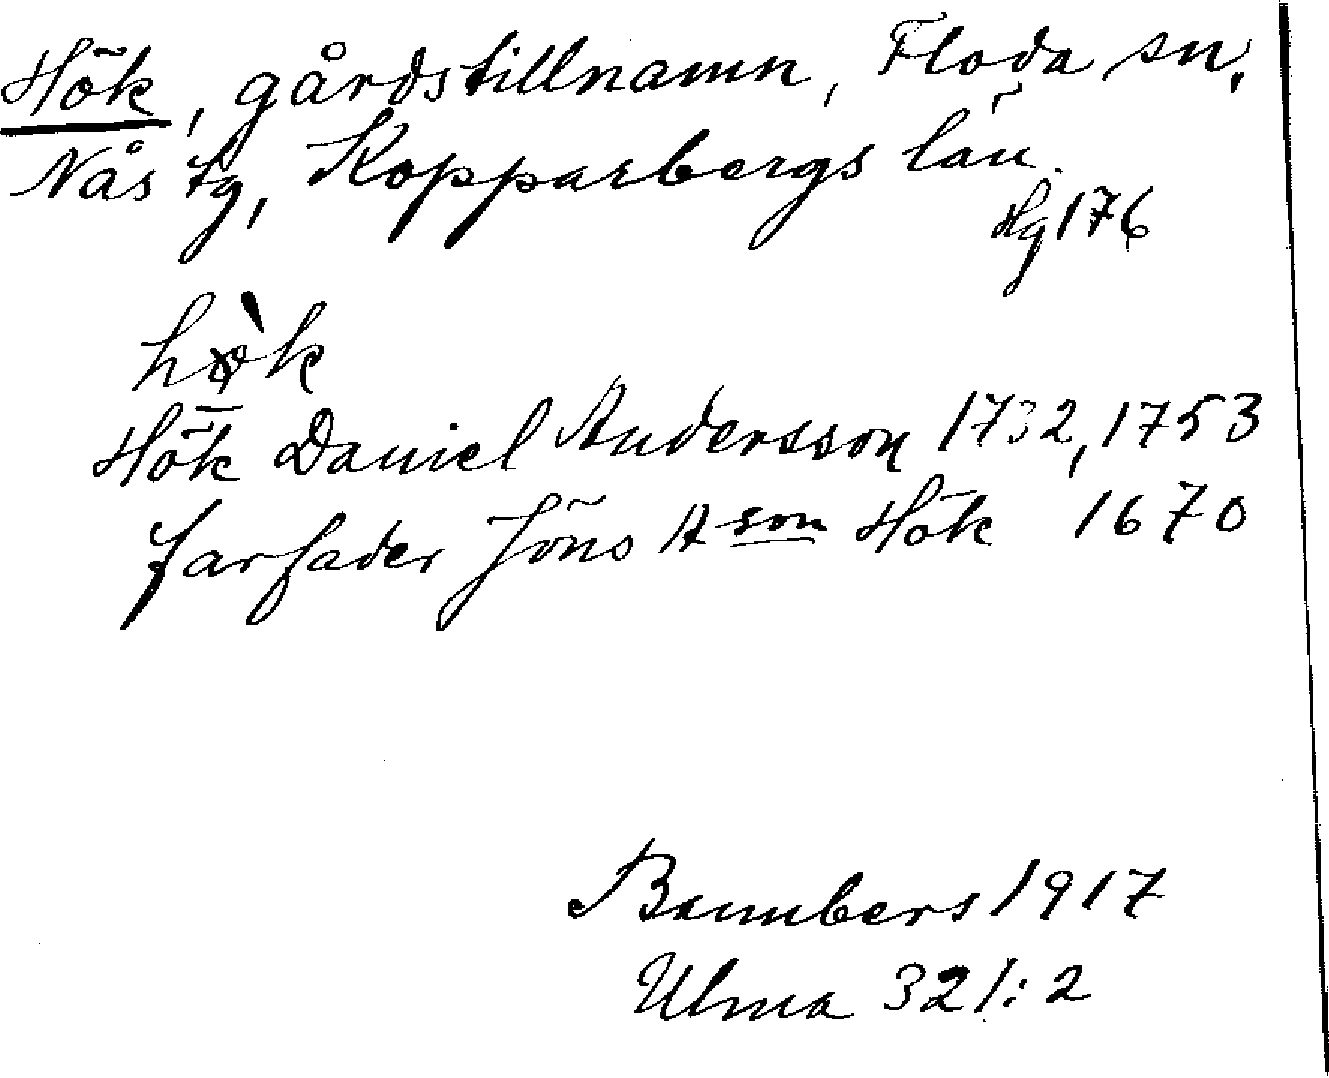 Hök, gårdstillnamn, Floda sn,
Nås tg, Kopparbergs län.
Hg 176
hø̀k
Hök Daniel Andersson 1732, 1753
farfader Jöns A son Hök 1670
Bannbers 1917
Ulma 321:2